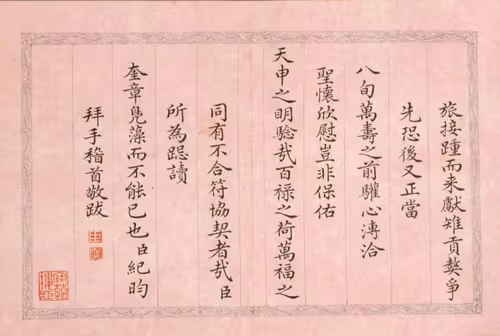 旅接踵而来獻雉貢獒爭
先恐後又正當
八旬萬壽之前驩心溥洽
聖懷欣慰豈非保佑
天申之明騐哉百禄之荷萬福之
同有不合符協契者哉臣
所為跽讀
奎章鳧藻而不能已也臣紀昀
拜手稽首敬跋